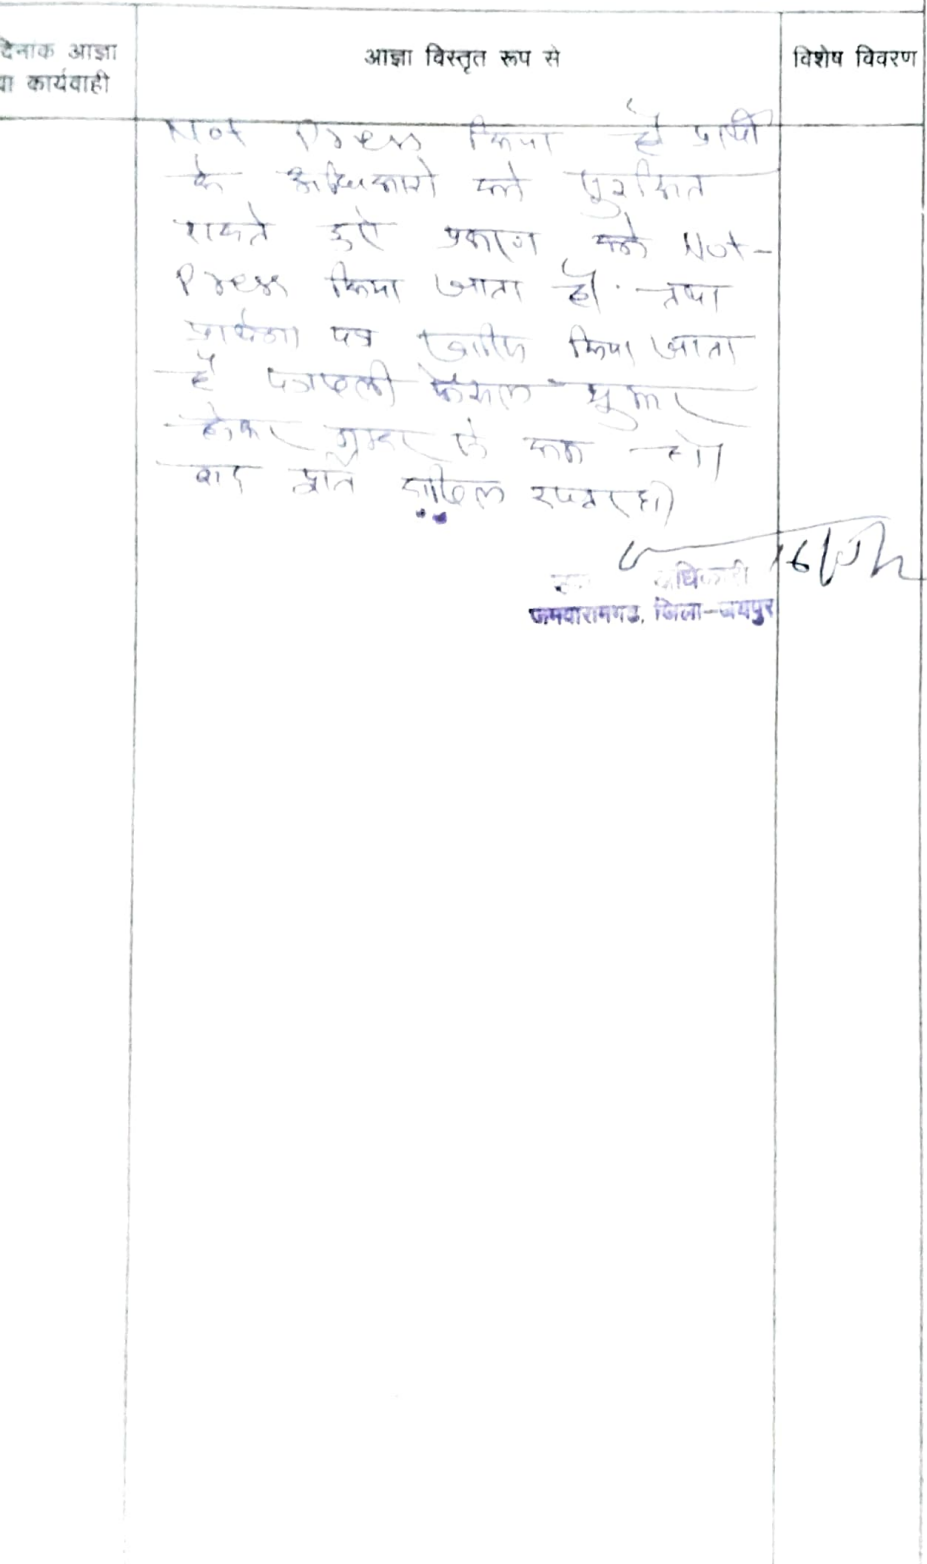 दिनांक आज्ञा
या कार्यवाही
आज्ञा विस्तृत रूप से
विशेष विवरण
Not Press किया है प्रार्थी
के अधिकारो को सुरक्षित
रखते हुऐ प्रकरण को Not-
Press किया जाता है। तथा
प्रार्थना पत्र खारिज किया जाता
है पत्रावली फैसल शुमार
होकर नम्बर से कम हो
बाद दाखिल दफ्तर हो
अधिकारी
जमवारामगढ, जिला-जयपुर